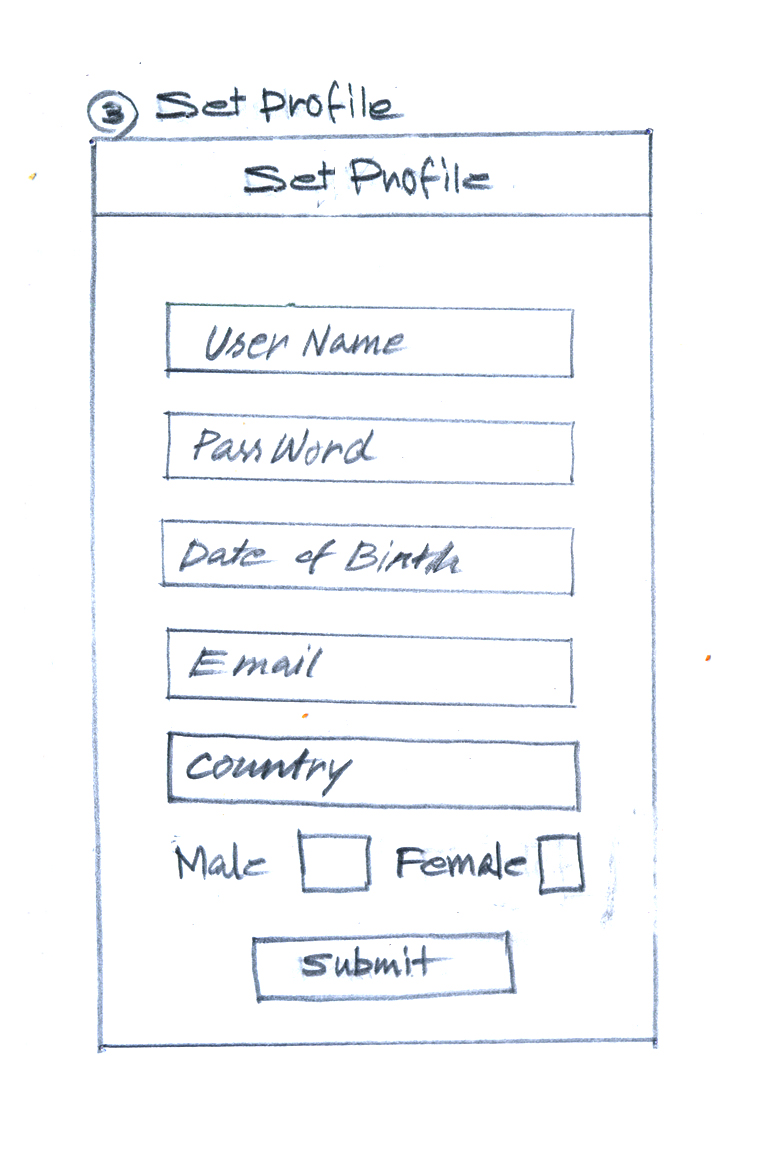 3 Set Profile
Set Profile
User Name
PassWord
Date of Birth
Email
Country
Male Female
Submit